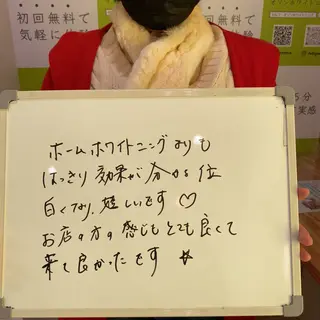 初回無料で
気軽に
ホームホワイトニングよりも
はっきり効果が分かる位
白くなり、嬉しいです♡
お店の方の感じもとても良くて
来て良かったです☆